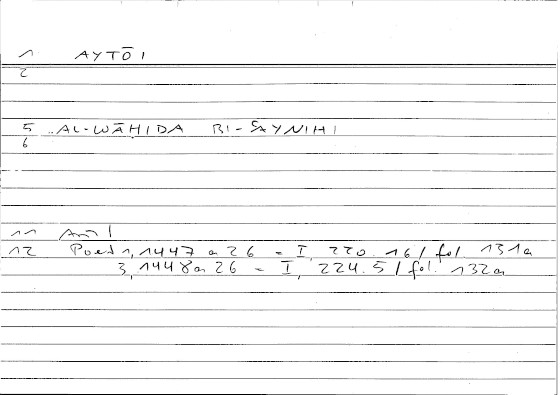 1 AYTŌI
2
5 AL-WĀḤIDA BI-ʿAYNIHI
6
11
12 Poet 1, 1447 a 26 = I, 220. 16 / fol. 131a
3, 1448 a 26 = I, 224. 5 / fol. 132a